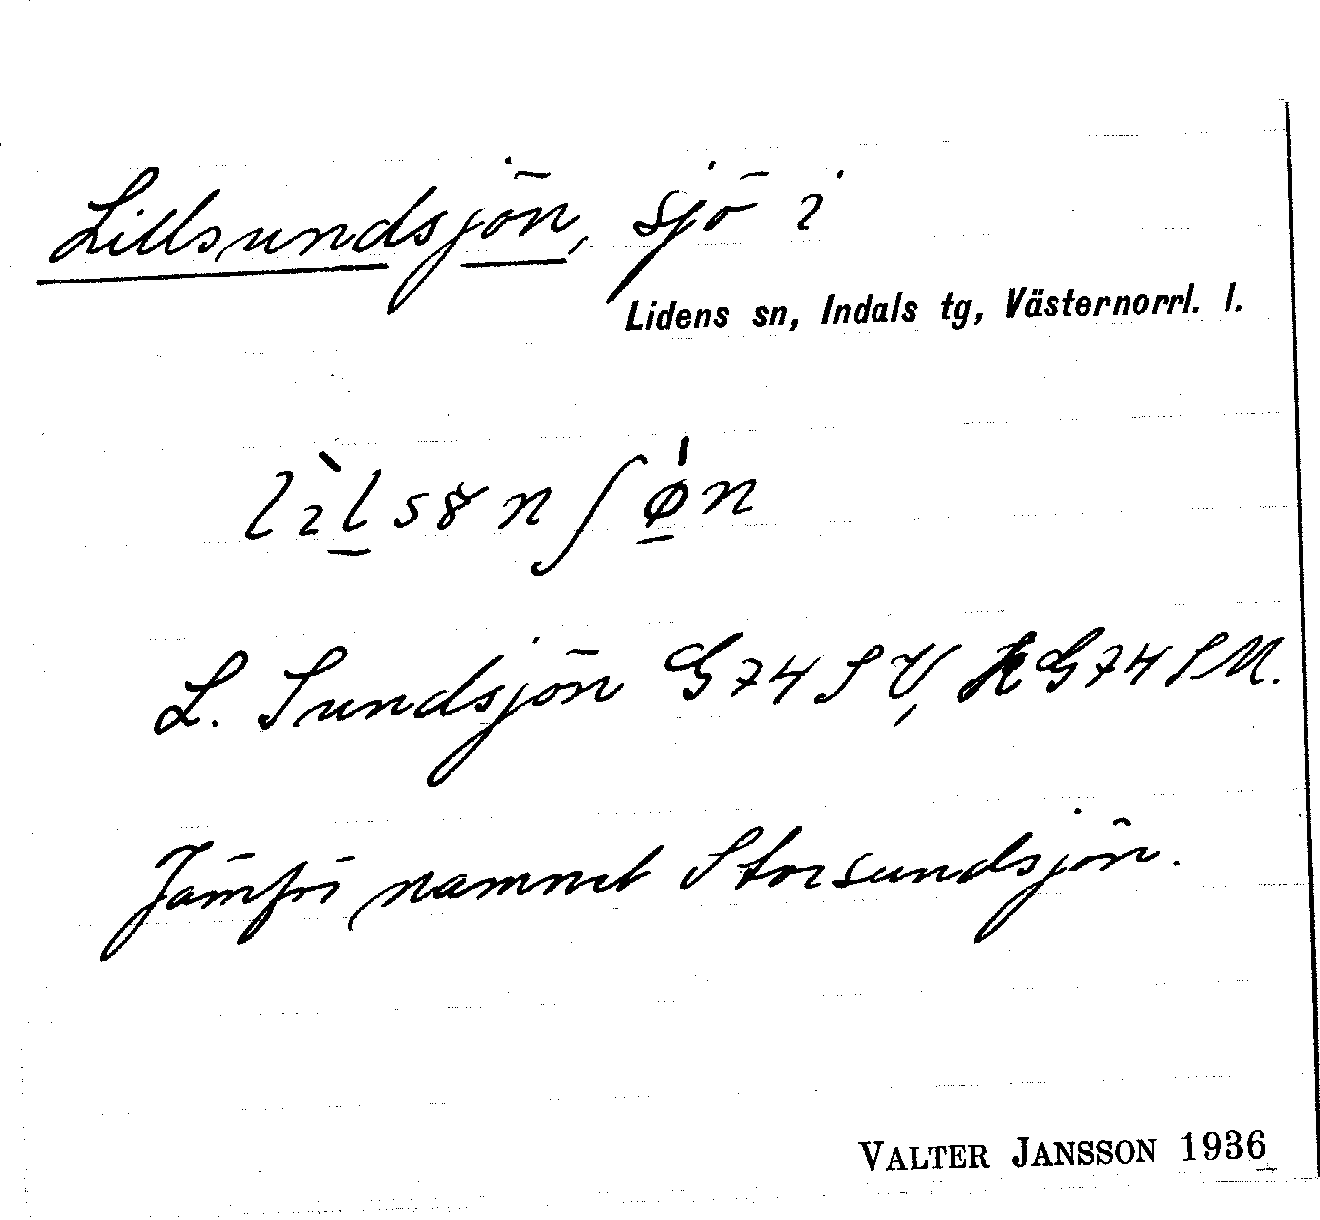 Lillsundsjön, sjö i
Lidens sn, Indals tg, Västernorrl. l.
lìlsȣnʃǿ̱n
L. Sundsjön G74SV, kG74SM.
Jämför namnet Storsundsjön.
VALTER JANSSON 1936